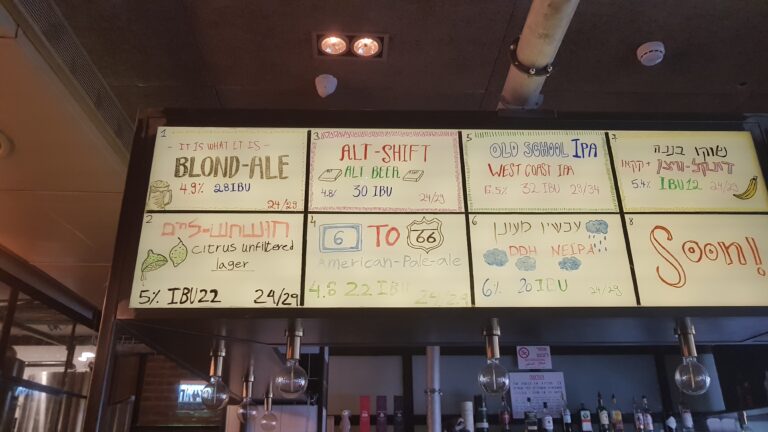 1
- IT IS WHAT IT IS -
BLOND-ALE
4.9% 28IBU
24/29
3
ALT-SHIFT
ALT BEER
4.8% 30 IBU
24/29
5
OLD SCHOOL IPA
WEST COAST IPA
6.5% 32 IBU 29/34
7
שוקו בננה
דונקל-וויצן + קקאו
5.4% IBU12 24/29
2
citrus unfiltered
lager
5% IBU22 24/29
4
6 TO 66
American-Pale-ale
4.8 22 IBU 24/29
6
עכשיו מעונן
DDH NEIPA
6% 20 IBU 24/29
8
Soon!